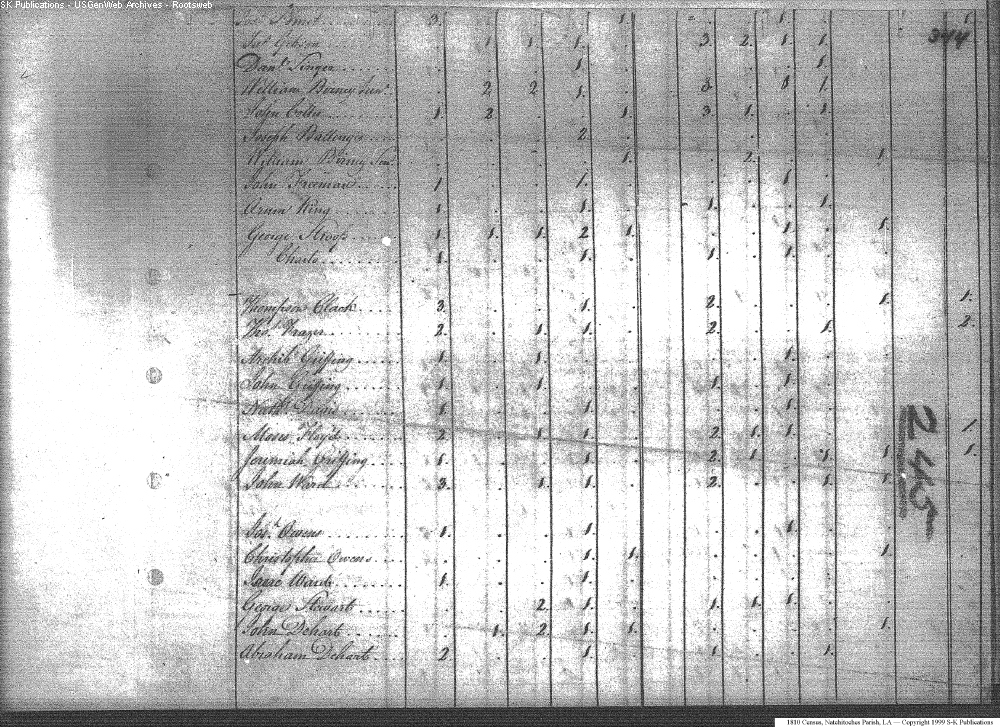 SK Publications - USGenWeb Archives - Rootsweb
3. 1. 1. 1.
344
Jas. Gibson 1 1 1. 3. 2. 1 1.
Danl. 1. 1.
William Birney Junr. 2 2 1. 3. 1 1.
John 1. 2 1. 3. 1. 1.
Joseph Ballenger 2.
William Birney Senr. 1. 2. 1.
John Freeman 1. 1. 1.
King 1. 1. 1. 1.
George 1. 1. 1. 2 1. 1. 1.
Charls 1. 1. 1. 1.
Thompson Clack 3. 1. 2. 1. 1.
Frazer 2. 1. 1. 2. 1. 2.
Archib. Griffing 1. 1. 1.
John Griffing 1. 1. 1. 1.
Nathl. Davis 1. 1. 1.
Moses Floyd 2. 1. 1. 2. 1. 1. 1.
Jeremiah Griffing 1. 1. 2. 1. 1. 1. 1.
John Ward 3. 1. 1. 2. 1. 1.
245
Owens 1. 1. 1.
Christopher Owens 1. 1. 1.
Isaac Ward 1. 1.
George Stewart 2. 1. 1. 1. 1.
John Dehart 1. 2. 1. 1. 1.
Abraham Dehart 2. 1. 1. 1.
1810 Census, Natchitoches Parish, LA — Copyright 1999 S-K Publications